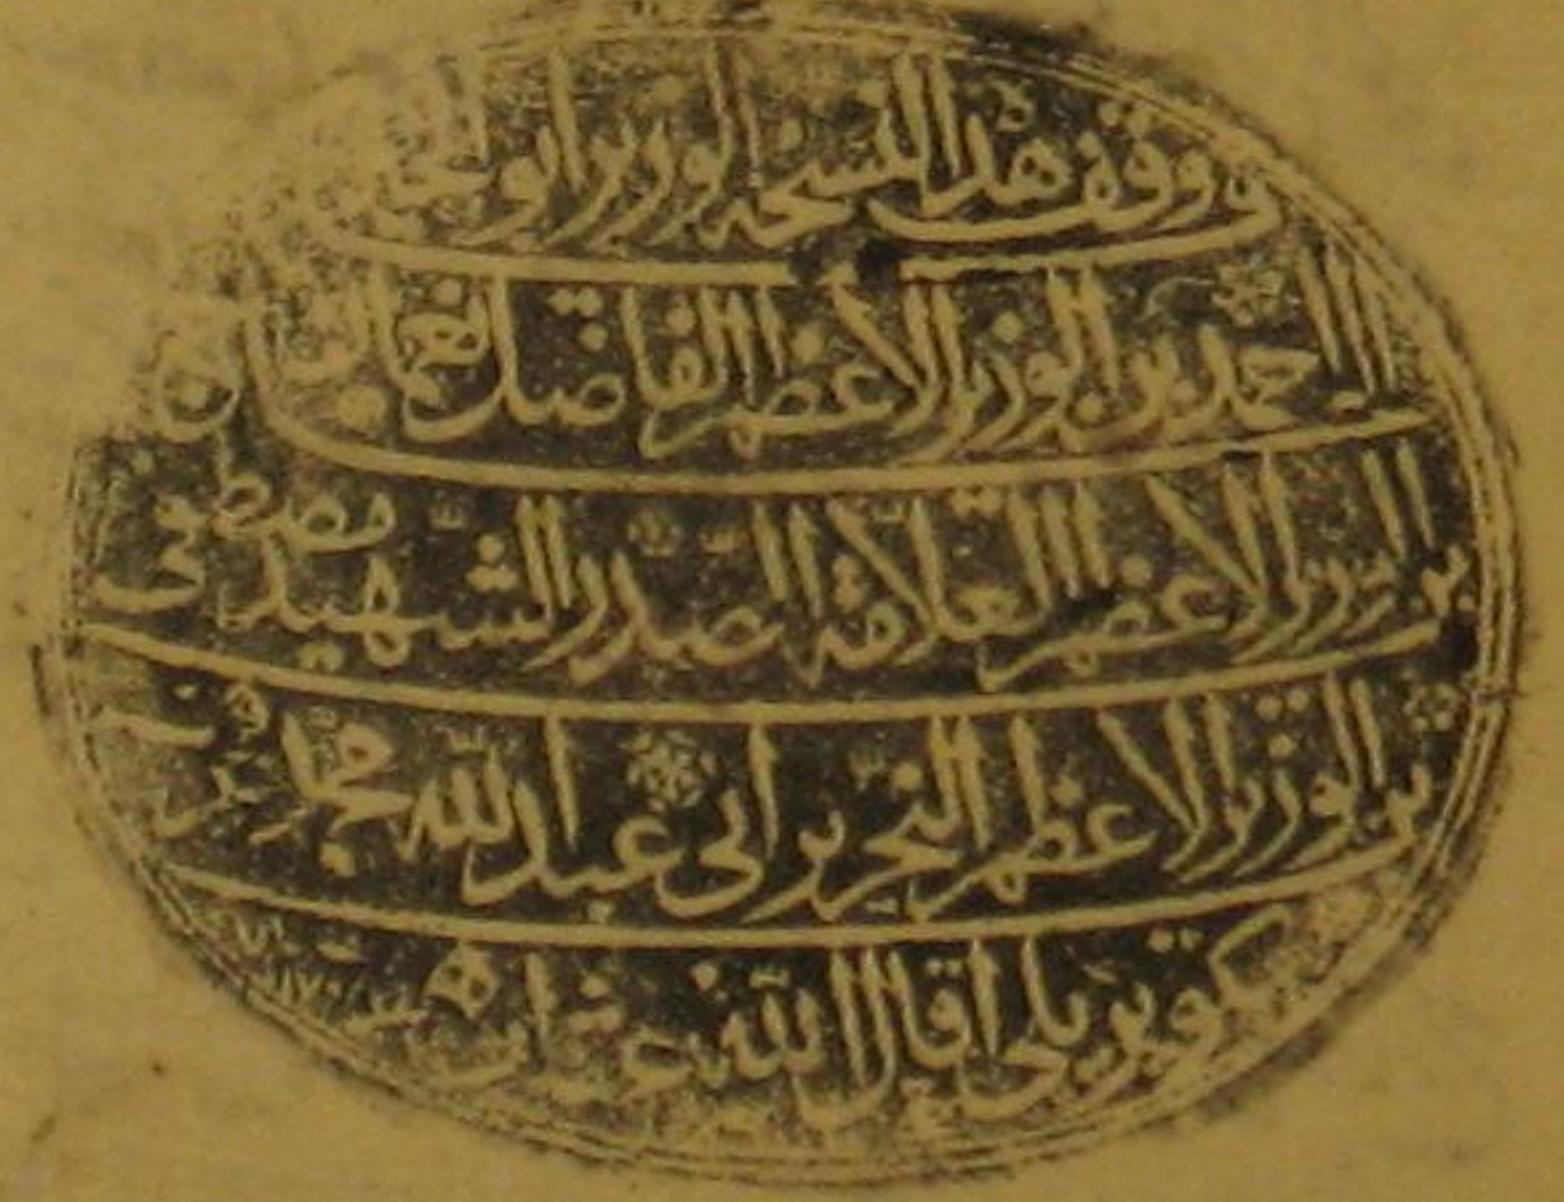 وقف هذا النسخه الوزير ابو الخير
احمد بن الوزير الاعظم الفاضل نعمان
بن الوزير الاعظم العلامة الصدر الشهيد مصطفى
بن الوزير الاعظم النحرير ابي عبد الله محمد عرف
بكوپريلي اقال الله عثارهما سنة ١١٧٠